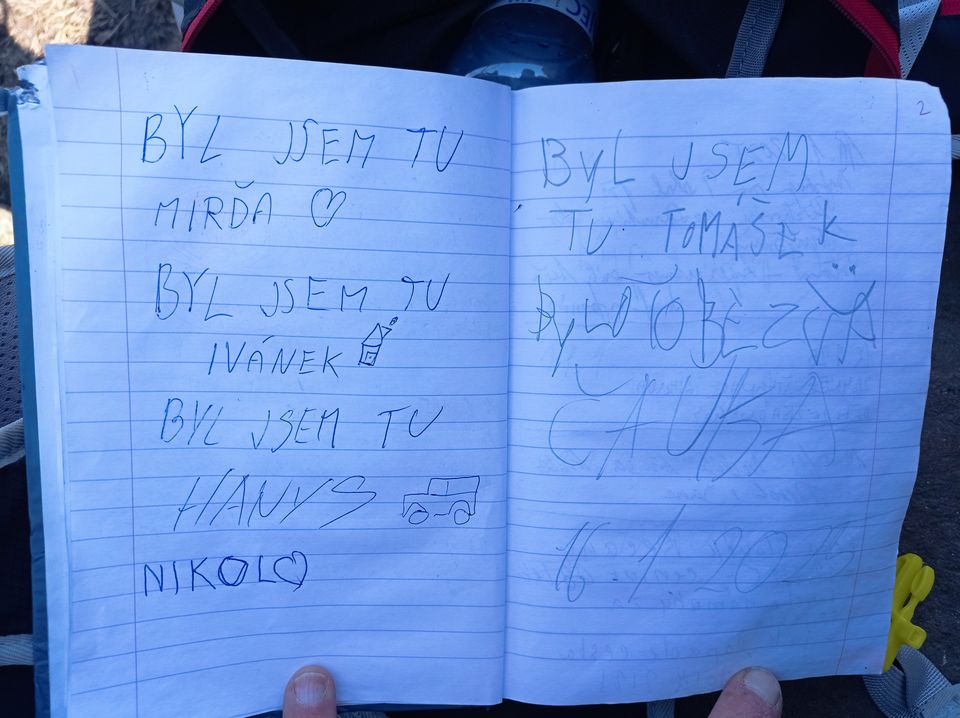 BYL JSEM TU
MIRĎA ♡
BYL JSEM TU
IVÁNEK
BYL JSEM TU
HANYS
NIKOL♡
2
BYL JSEM
TU TOMÁŠEK
BYLO
16 1